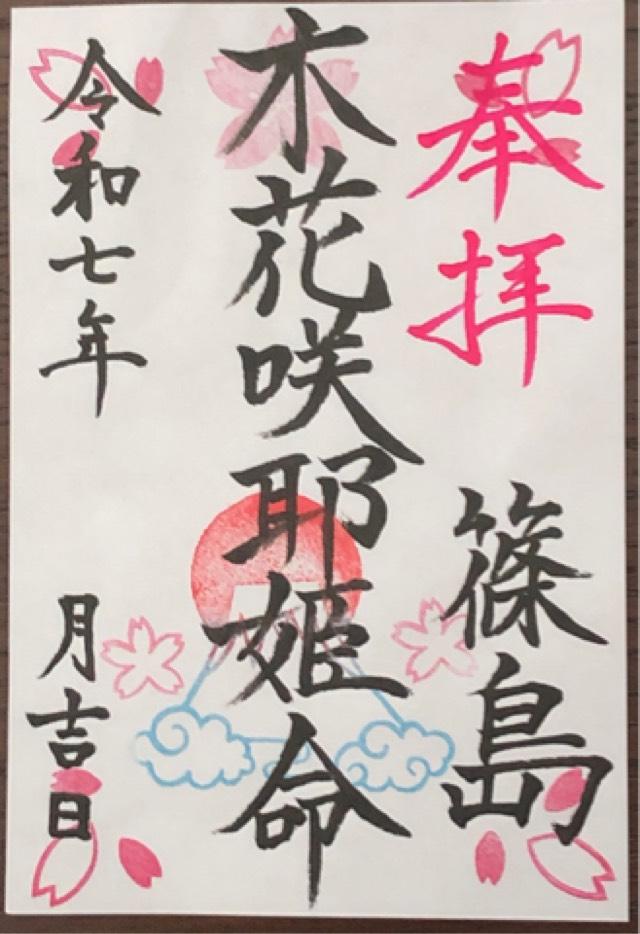 奉拝
篠島
木花咲耶姫命
令和七年
月吉日